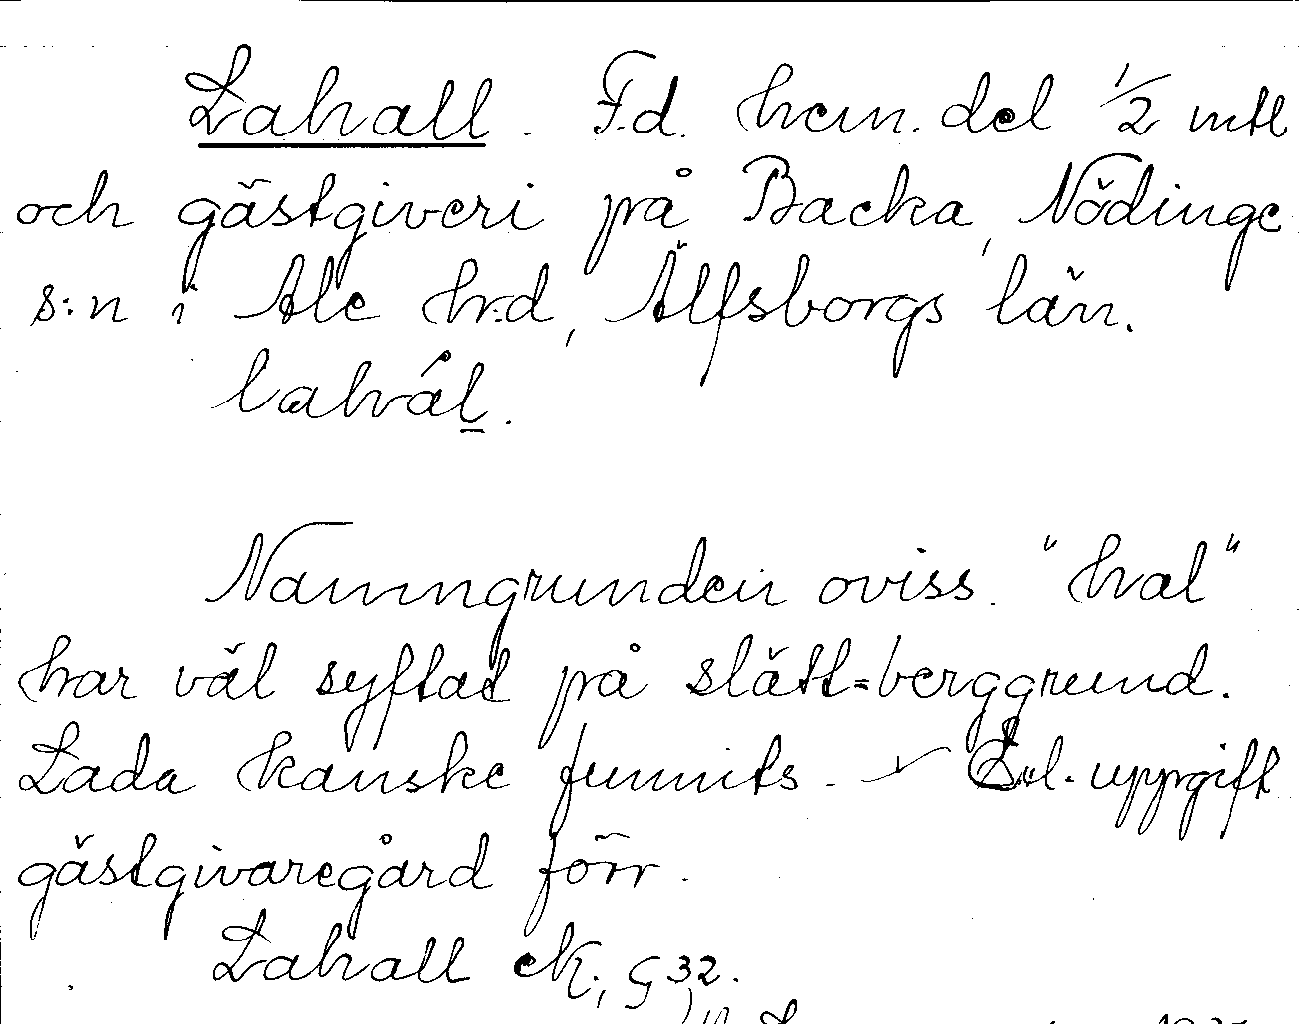 Lahall. F.d. hem. del 1/2 mtl
och gästgiveri på Backa, Nödinge
s:n i Ale h:d, Älfsborgs län.
lahál.
Namngrunden oviss. "hal"
har väl syftat på slätt=berggrund.
Lada kanske funnits. - Enl. uppgift
gästgivaregård förr.
Lahall ek., G 32.